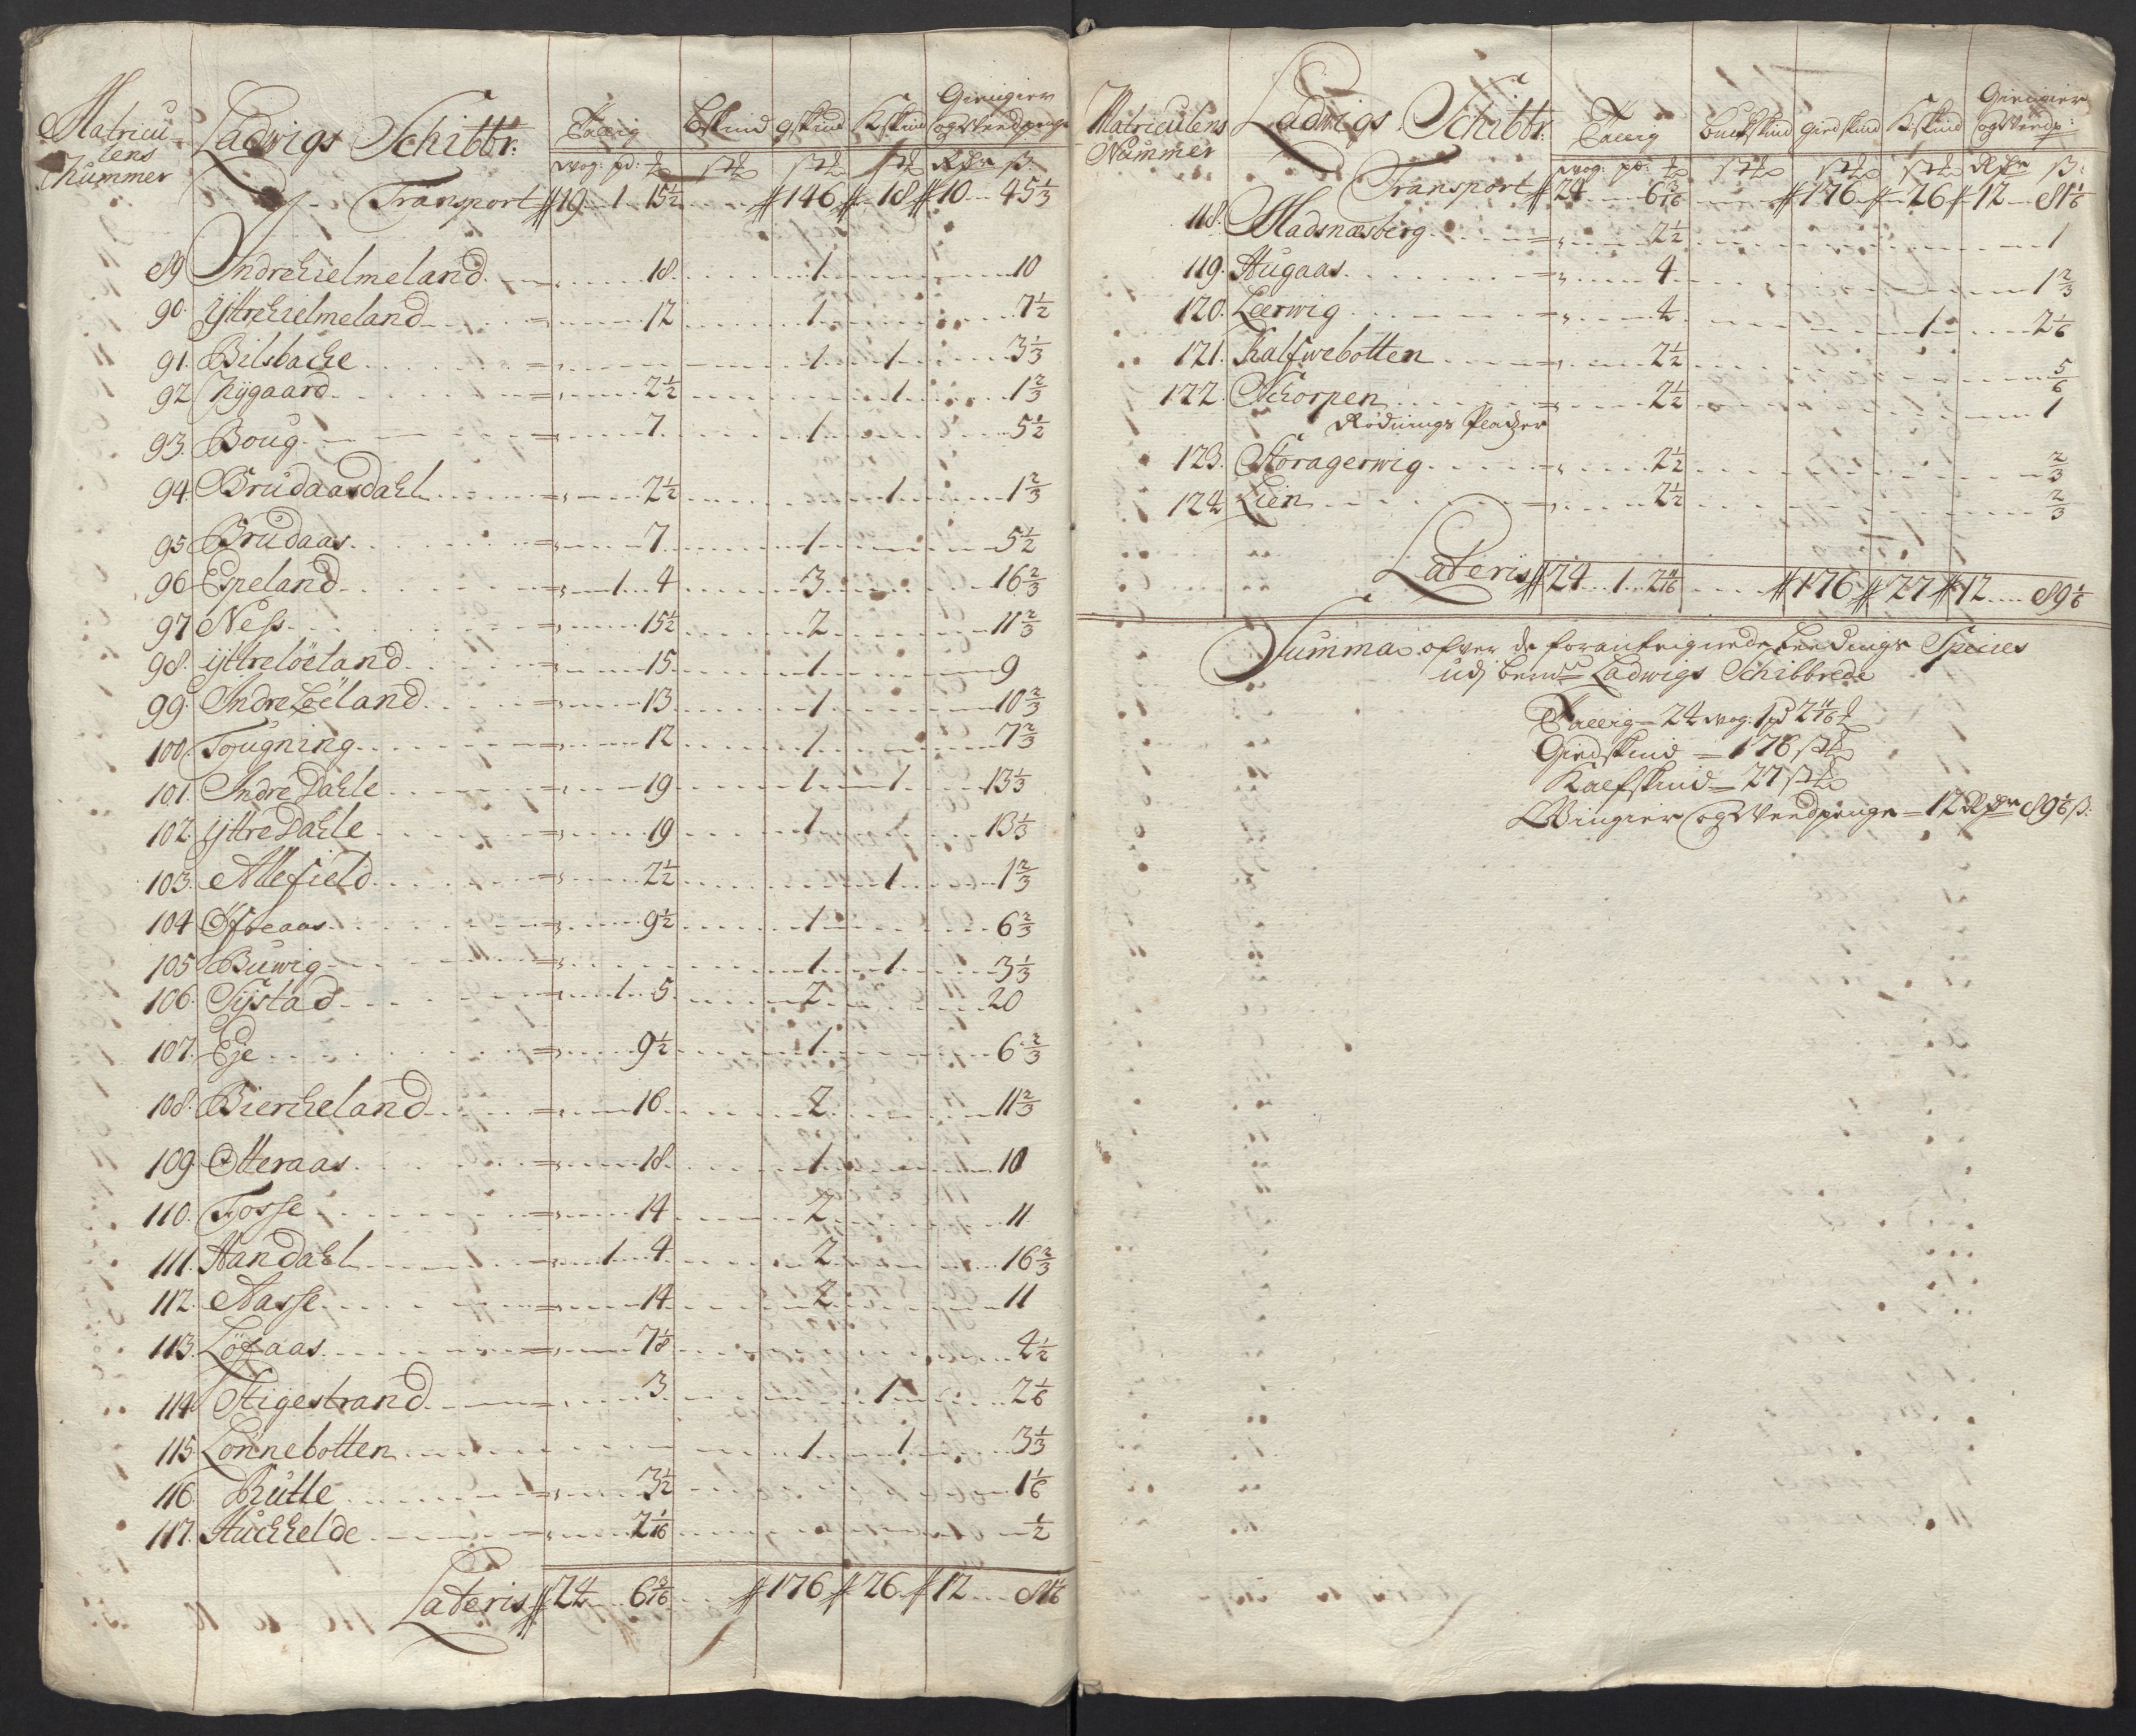 Matricu-
lens
Nummer
Ladwigs Schibbr:
Tallig
Bskind
gskind
Kskind
Giengier
og Wendpenge
wog: pd:
Rdr ß
Transport 19 1 15½ 146 18 10 45⅓
89 Indrehielmeland 18 1 10
90. ÿttrehielmeland 12 1 7½
91. Bilsbache 1 1 3⅓
92 Nÿgaard 2½ 1 1⅔
93. Boug 7 1 5½
94. Brudaasdahl 2½ 1 1⅔
95 Brudaas 7 1 5½
96 Espeland 1 4 3 16⅔
97 Ness 15½ 2 11⅔
98. ÿttrelöeland 15 1 9
99. Indre Löeland 13 1 10⅔
100 Tougning 12 1 7⅔
101. Indre Dahle 19 1 1 13⅓
102. ÿttre Dahle 19 1 13⅓
103. Allefield 2½ 1 1⅔
104 Ofteaas 9½ 1 6⅔
105 Buwig 1 1 3⅓
106. Sÿstad 1 5 2 20
107. Eje 9½ 1 6⅔
108. Biercheland 16 2 11⅔
109. Otteraas 18 1 10
110. Fosse 14 2 11
111. Handahl 1 4 2 16⅔
112. Aasse 14 2 11
113. Löfaas 7⅛ 4½
114 Stigestrand 3 1 2⅙
115. Lonnebotten 1 1 3⅓
116. Rutle 3½ 1⅙
117. Huchhelde 2 1/16 ½
Lateris 24 6 3/16 176 26 12 81⅙
Matriculens
Nummer
Ladwigs Schibbr:
Tallig
Buckskind
Giedskind
Kskind
Giengier
og Wendp:
wog: pd:
Rdr ß:
Transport 24 6 3/16 176 26 12 81⅙
118. Madsnæsberg 2½ 1
119. Hugaas 4 1⅔
120. Leerwig 4 1 2⅙
121. Kalfwebotten 2½ ⅚
122. Schorpen 2½ 1
Rödnings Pladzer
123. Storagerwig 2½ ⅔
124 Lien 2½ ⅔
Lateris 24 1 2 11/16 176 27 12 89⅙
Summa ofver de foranteignede Leedings Species
udj bemte Ladwigs Schibbrede
Tallig = 24 wog: 1 pd 2 11/16
Giedskind = 176
Kalfskind = 27
Wingier og Wendpenge = 12 Rdr 89⅙ ß: